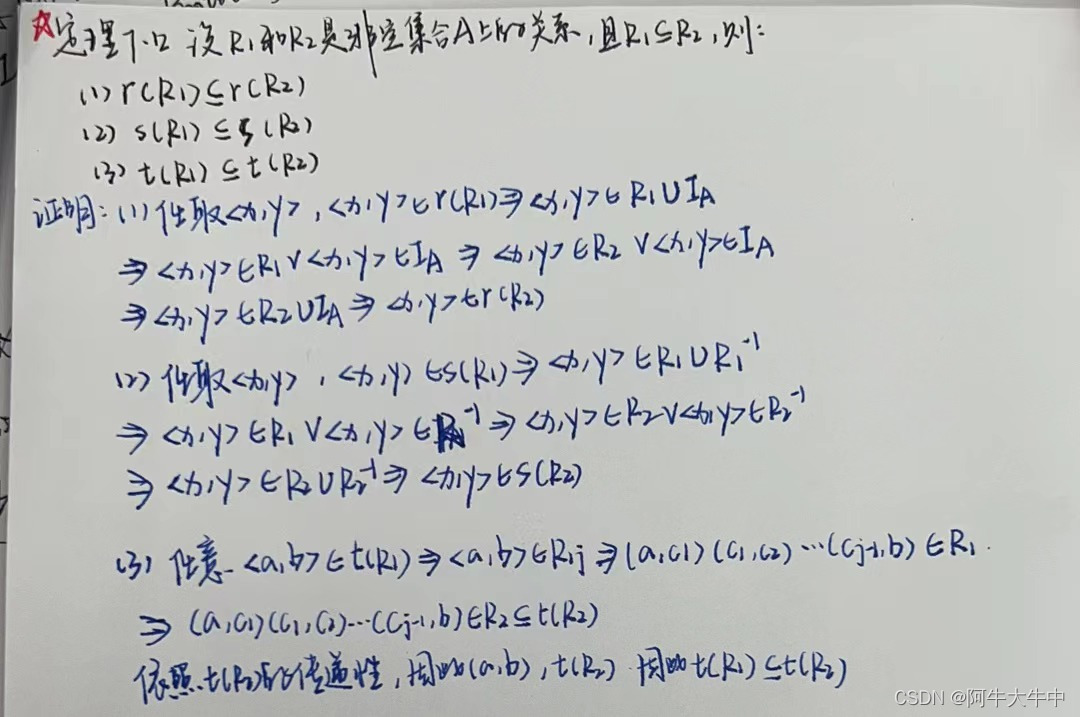 ☆定理7.12 设R₁和R₂是非空集合A上的关系,且R₁⊆R₂,则:
(1) r(R₁)⊆r(R₂)
(2) s(R₁)⊆s(R₂)
(3) t(R₁)⊆t(R₂)
证明:(1) 任取<x,y>,<x,y>∈r(R₁)⇒<x,y>∈R₁∪I_A
⇒<x,y>∈R₁∨<x,y>∈I_A ⇒<x,y>∈R₂∨<x,y>∈I_A
⇒<x,y>∈R₂∪I_A⇒<x,y>∈r(R₂)
(2) 任取<x,y>,<x,y>∈s(R₁)⇒<x,y>∈R₁∪R₁⁻¹
⇒<x,y>∈R₁∨<x,y>∈R₁⁻¹⇒<x,y>∈R₂∨<x,y>∈R₂⁻¹
⇒<x,y>∈R₂∪R₂⁻¹⇒<x,y>∈s(R₂)
(3) 任意<a,b>∈t(R₁)⇒<a,b>∈R₁j⇒(a,c₁)(c₁,c₂)…(cj-1,b)∈R₁.
⇒(a,c₁)(c₁,c₂)…(cj-1,b)∈R₂⊆t(R₂)
依照t(R₂)的传递性,因此(a,b),t(R₂) 因此t(R₁)⊆t(R₂)
CSDN @阿牛大牛中